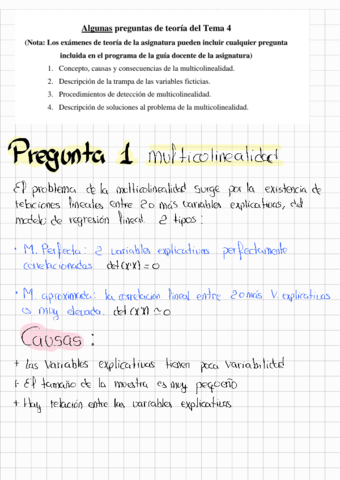 Algunas preguntas de teoría del Tema 4
(Nota: Los exámenes de teoría de la asignatura pueden incluir cualquier pregunta
incluida en el programa de la guía docente de la asignatura)
1. Concepto, causas y consecuencias de la multicolinealidad.
2. Descripción de la trampa de las variables ficticias.
3. Procedimientos de detección de multicolinealidad.
4. Descripción de soluciones al problema de la multicolinealidad.
Pregunta 1 multicolinealidad
El problema de la multicolinealidad surge por la existencia de
relaciones lineales entre 2 o más variables explicativas, del
modelo de regresión lineal. 2 tipos:
· M. Perfecta: 2 variables explicativas perfectamente
correlacionadas. det(x'x)=0
· M. aproximada: la correlación lineal entre 2 o más V. explicativas
es muy elevada. det(x'x)≃0
Causas:
+ Las variables explicativas tienen poca variabilidad
+ El tamaño de la muestra es muy pequeño
+ Hay relación entre las variables explicativas